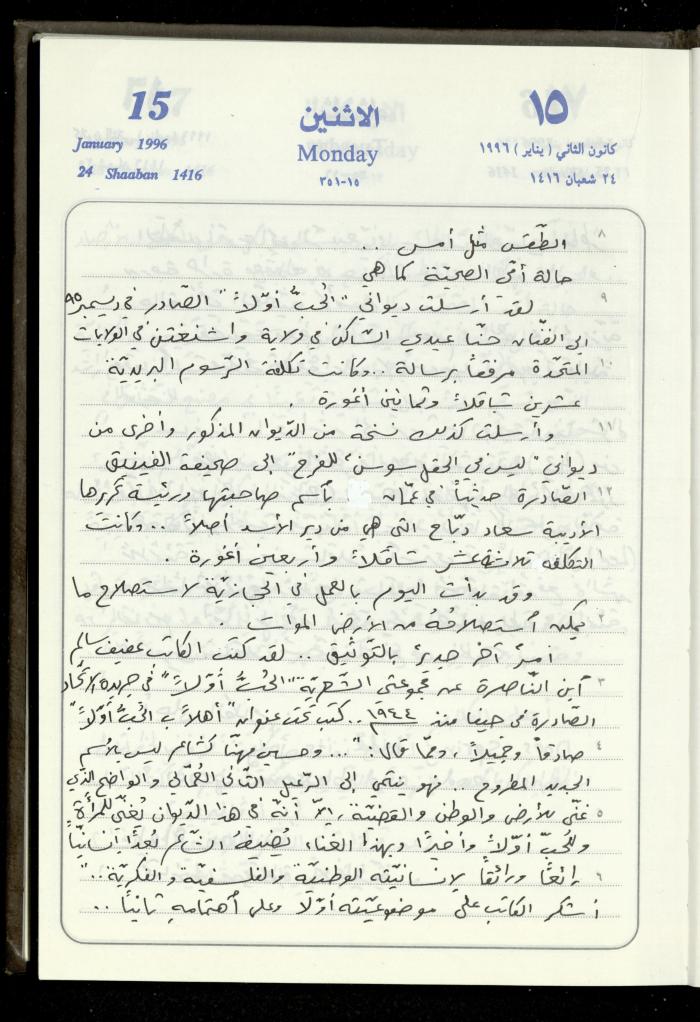 15
January 1996
24 Shaaban 1416
الاثنين
Monday
١٥-٣٥١
١٥
كانون الثاني ( يناير ) ١٩٩٦
٢٤ شعبان ١٤١٦
٨ الطّقس مثل أمس ...
حالة أمّي الصحيّة كما هي
٩ لقد أرسلت ديواني "الحبُّ أوّلاً" الصّادر في ديسمبر ٩٥
الى الفنّان حنّا عيدي السّاكن في ولاية واشنغتن في الولايات
١٠ المتحّدة مرفقاً برسالة .. وكانت تكلفة الرّسوم البريديّة
عشرين شاقلاً وثمانين أغورة .
١١ وأرسلت كذلك نسخة من الدّيوان المذكور وأخرى من
ديواني "ليس في الحقل سوسن للفرح" الى صحيفة الفينيق
١٢ الصّادرة حديثاً في عمّان بأسم صاحبتها ورئيسة تحريرها
الأديبة سعاد دبّاح التي هي من دير الأسد أصلاً .. وكانت
١ التكلفه ثلاثة عشر شاقلاً وأربعين أغورة .
وقد بدأت اليوم بالعمل في الجبّارية لاستصلاح ما
٢ يمكن أستصلاحُهُ من الأرض الموات .
أمرٌ آخر جديرٌ بالتّوثيق .. لقد كتب الكاتب عفيف سالم
٣ أبن النّاصرة عن مجموعتي الشّعريّة "الحُبُّ أوّلاً" في جريدة الاتّحاد
الصّادرة في حيفا منذ ١٩٤٤ .. كتب تحت عنوان "أهلاً ب الحُبُّ أوّلاً"
٤ صادقاً وجميلاً ، وممّا قاله : "... وحسين مهنّا كشاعر ليس بالأسم
الجديد المطروح .. فهو ينتمي الى الرّعيل الثّاني العُمّالي والواضح الذي
٥ غنّى للأرض والوطن والقضيّة ، إلاّ أنّهُ في هذا الدّيوان يُغنّي للمرأةِ
وللحبّ أوّلاً وأخيرًا وبهذا الغناء يُضيفُ الشّاعر بُعدًا إنسانيًّا
٦ رائعًا ورائقًا لإنسانيّته الوطنيّة والفلسفيّة والفكريّة .."
أشكر الكاتب على موضوعيّته أوّلا وعلى أهتمامهِ ثانيًا ..